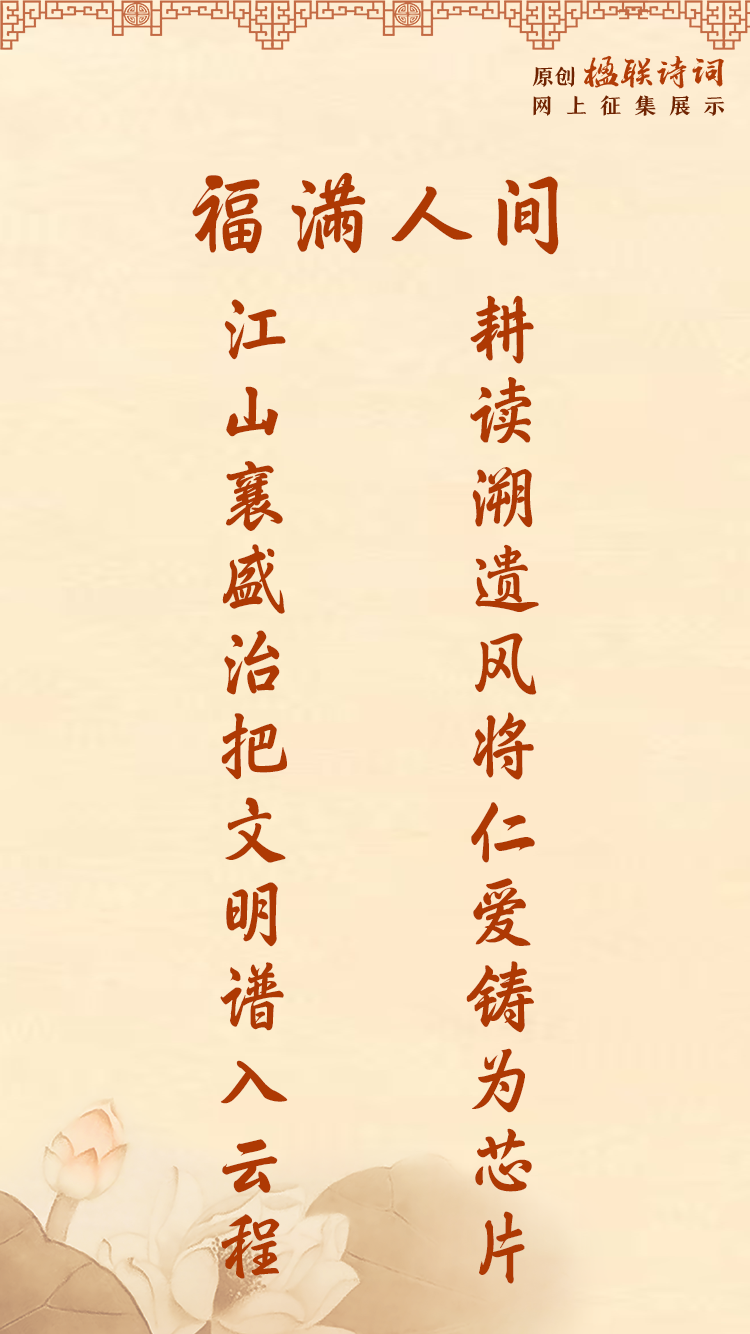 原创 楹联诗词
网上征集展示
福满人间
耕读溯遗风将仁爱铸为芯片
江山襄盛治把文明谱入云程